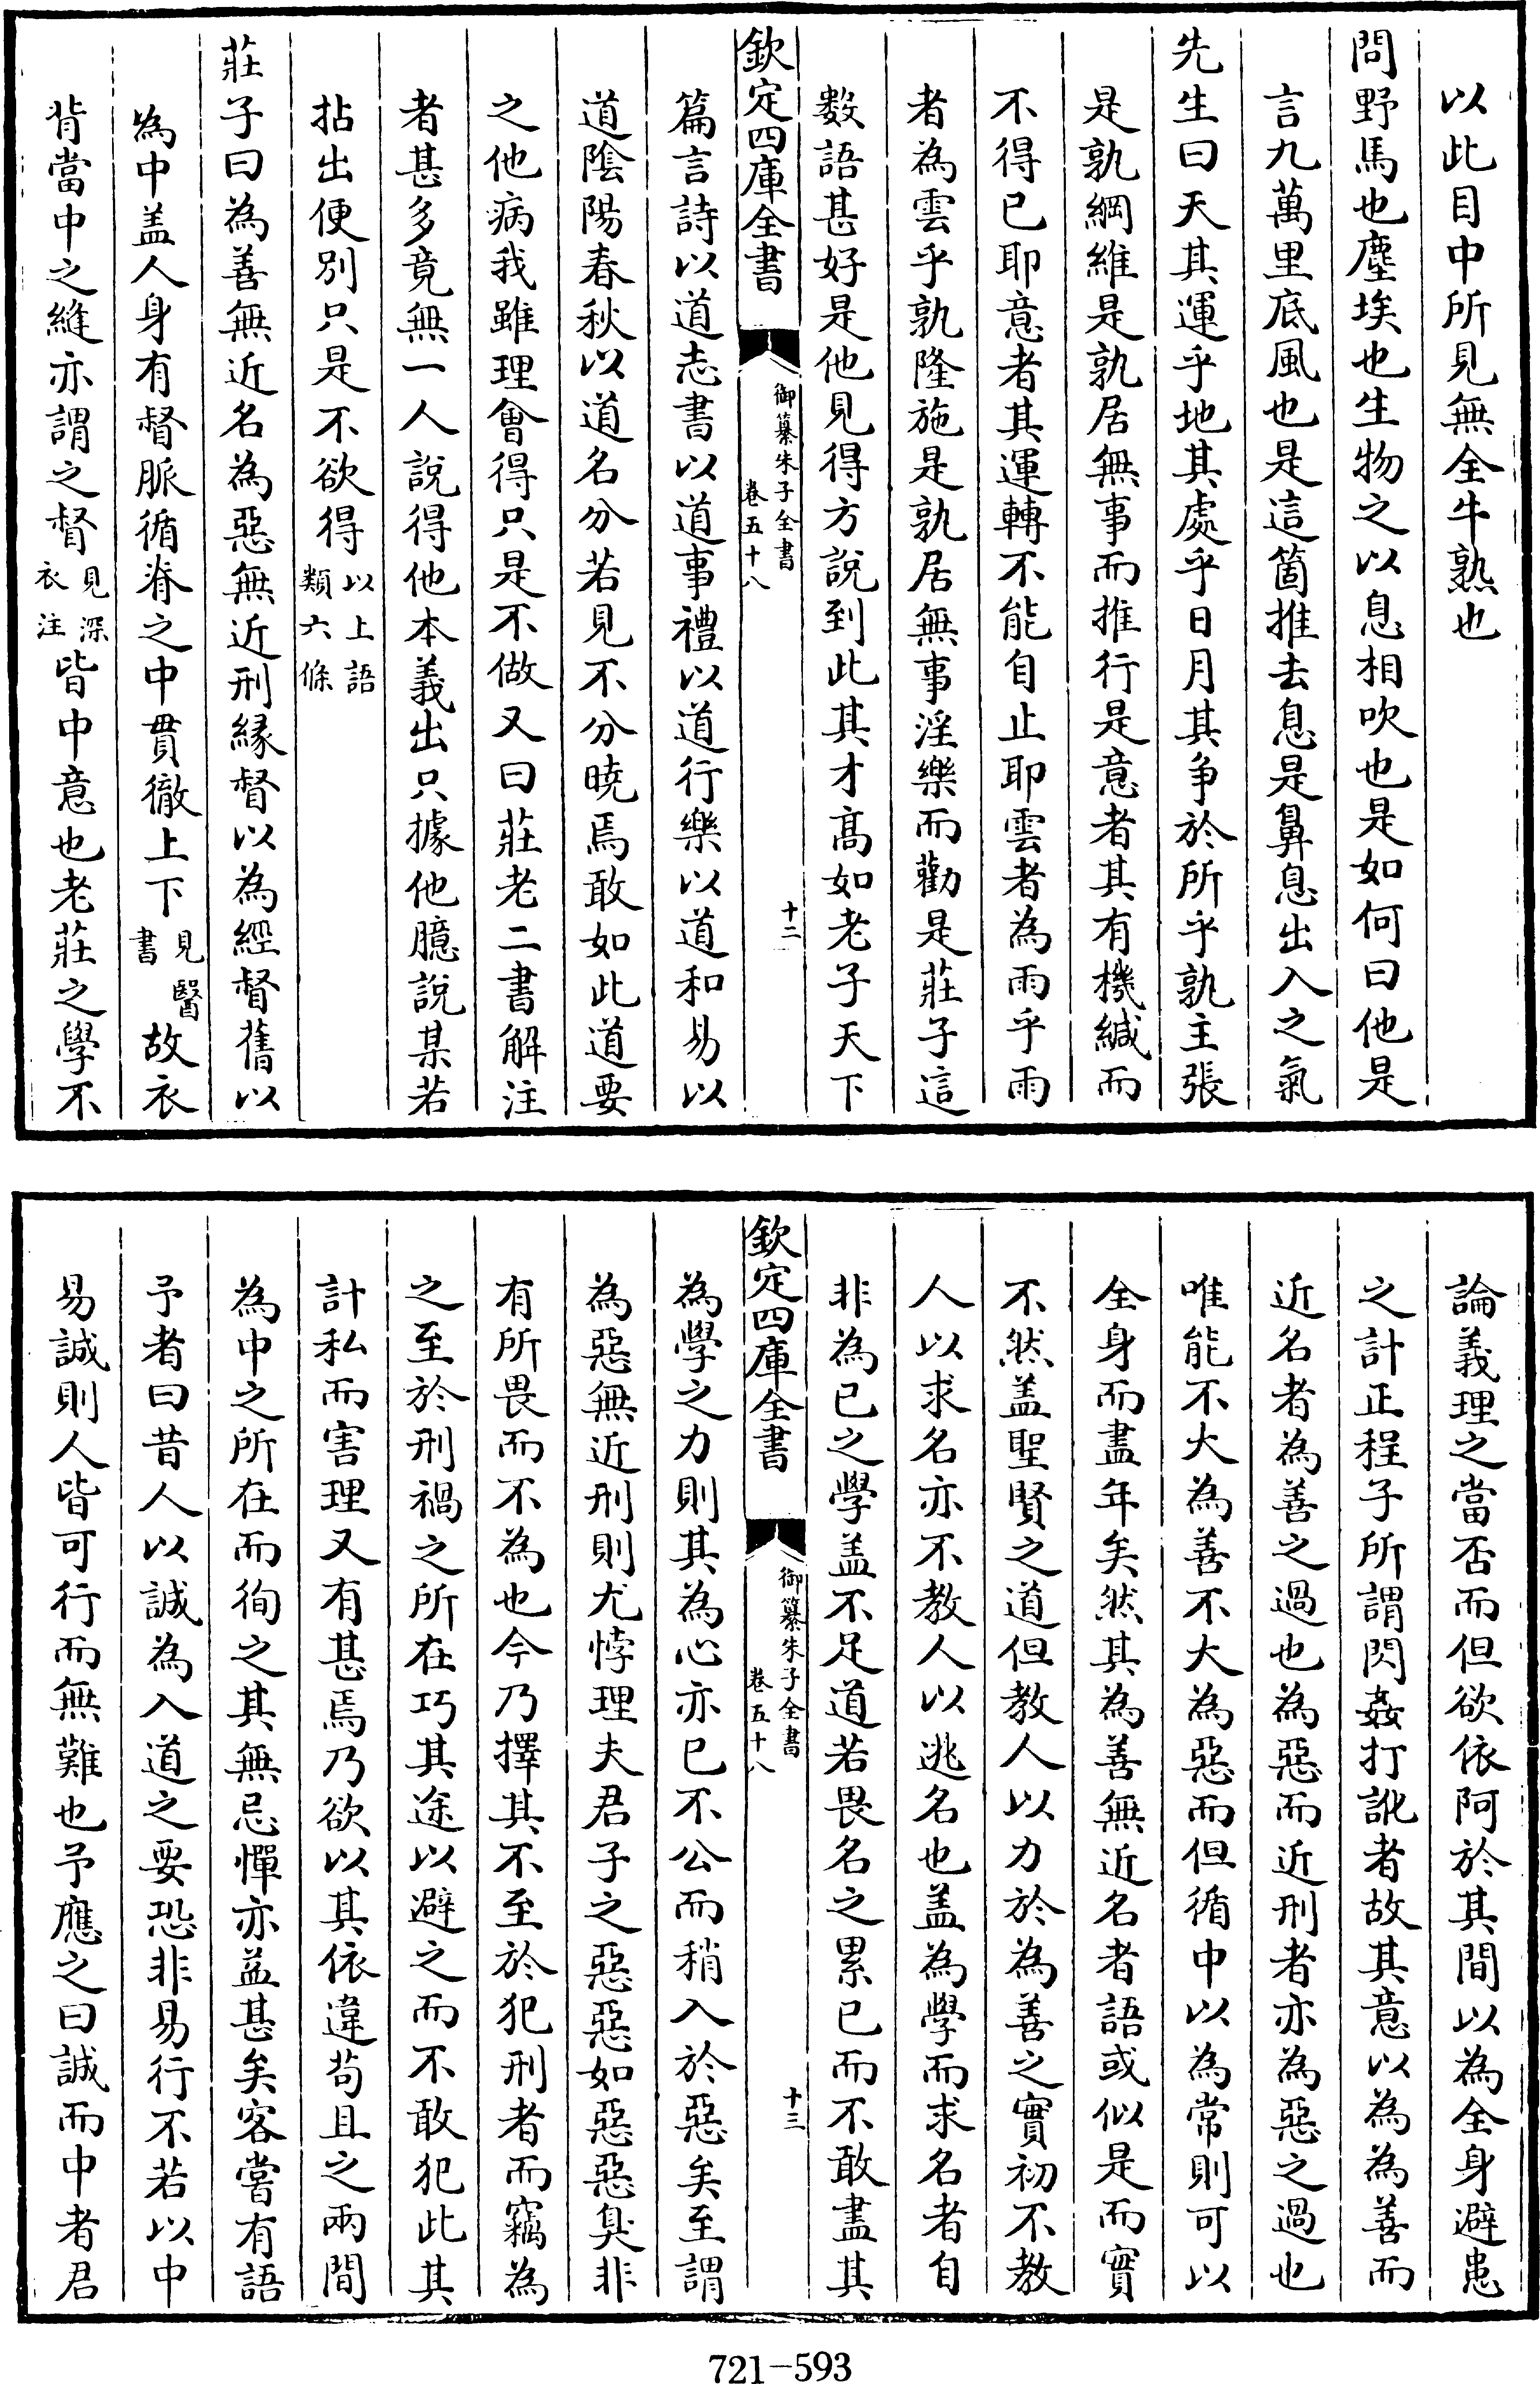 以此目中所見無全牛熟也
問野馬也塵埃也生物之以息相吹也是如何曰他是
言九萬里底風也是這箇推去息是鼻息出入之氣
先生曰天其運乎地其處乎日月其爭於所乎孰主張
是孰綱維是孰居無事而推行是意者其有機緘而
不得已耶意者其運轉不能自止耶雲者為雨乎雨
者為雲乎孰隆施是孰居無事淫樂而勸是莊子這
數語甚好是他見得方說到此其才髙如老子天下
欽定四庫全書
御纂朱子全書
卷五十八
十二
篇言詩以道志書以道事禮以道行樂以道和易以
道陰陽春秋以道名分若見不分曉焉敢如此道要
之他病我雖理會得只是不做又曰莊老二書解注
者甚多竟無一人說得他本義出只據他臆說某若
拈出便别只是不欲得以上語類六條
莊子曰為善無近名為惡無近刑緣督以為經督舊以
為中盖人身有督脈循脊之中貫徹上下見醫書故衣
背當中之縫亦謂之督見深衣注皆中意也老莊之學不
論義理之當否而但欲依阿於其間以為全身避患
之計正程子所謂閃姦打訛者故其意以為為善而
近名者為善之過也為惡而近刑者亦為惡之過也
唯能不大為善不大為惡而但循中以為常則可以
全身而盡年矣然其為善無近名者語或似是而實
不然盖聖賢之道但教人以力於為善之實初不教
人以求名亦不教人以逃名也盖為學而求名者自
非為已之學盖不足道若畏名之累已而不敢盡其
欽定四庫全書
御纂朱子全書
卷五十八
十三
為學之力則其為心亦已不公而稍入於惡矣至謂
為惡無近刑則尤悖理夫君子之惡惡如惡惡臭非
有所畏而不為也今乃擇其不至於犯刑者而竊為
之至於刑禍之所在巧其途以避之而不敢犯此其
計私而害理又有甚焉乃欲以其依違苟且之兩間
為中之所在而徇之其無忌憚亦益甚矣客嘗有語
予者曰昔人以誠為入道之要恐非易行不若以中
易誠則人皆可行而無難也予應之曰誠而中者君
721-593